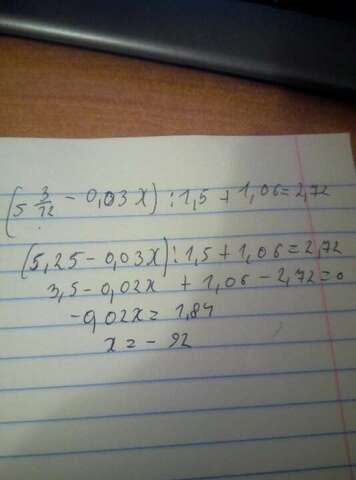 (5 3/12 - 0,03x) : 1,5 + 1,06 = 2,72
(5,25 - 0,03x) : 1,5 + 1,06 = 2,72
3,5 - 0,02x + 1,06 - 2,72 = 0
-0,02x = 1,84
x = - 92